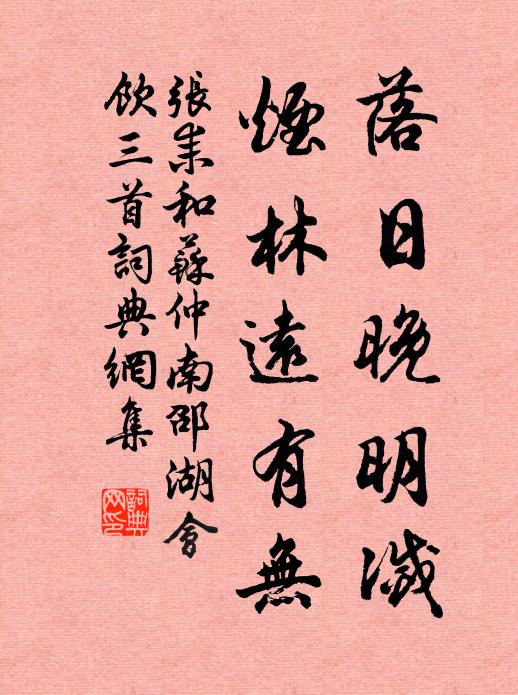 落日晚明滅
煙林遠有無
張耒和蘇仲南邵湖會
飲三首詞典網集
詞典
网印